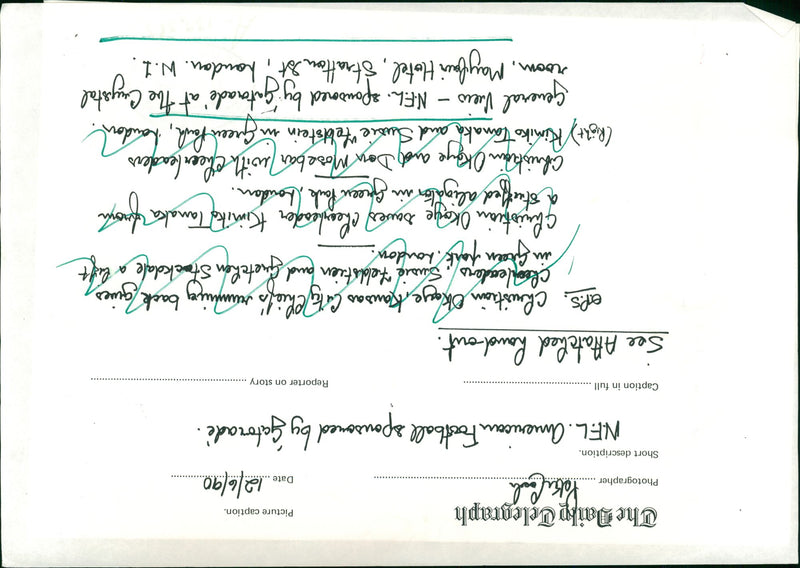 The Daily Telegraph
Picture caption.
Photographer
Date 12/6/90
Short description.
NFL. American Football sponsored by Gatorade'.
Caption in full
Reporter on story
See Attatched hand-out.
Christian Okoye, Kansas City Chief's running back gives
Cheerleaders Susie Feldstrien and Gretchen Stockdale a lift
in Green park. London
Christian Okoye saves Cheerleader Kimiko Tanaka from
a stuffed aligator in Green Park, London.
Christian Okoye and Don Mosebar with Cheerleaders
(Right) Kimiko Tanaka and Susie Feldstein in Green Park, London.
General View - NFL. sponsored by 'Gatorade' at the Crystal
room, Mayfair Hotel, Stratton St, London. W.1.